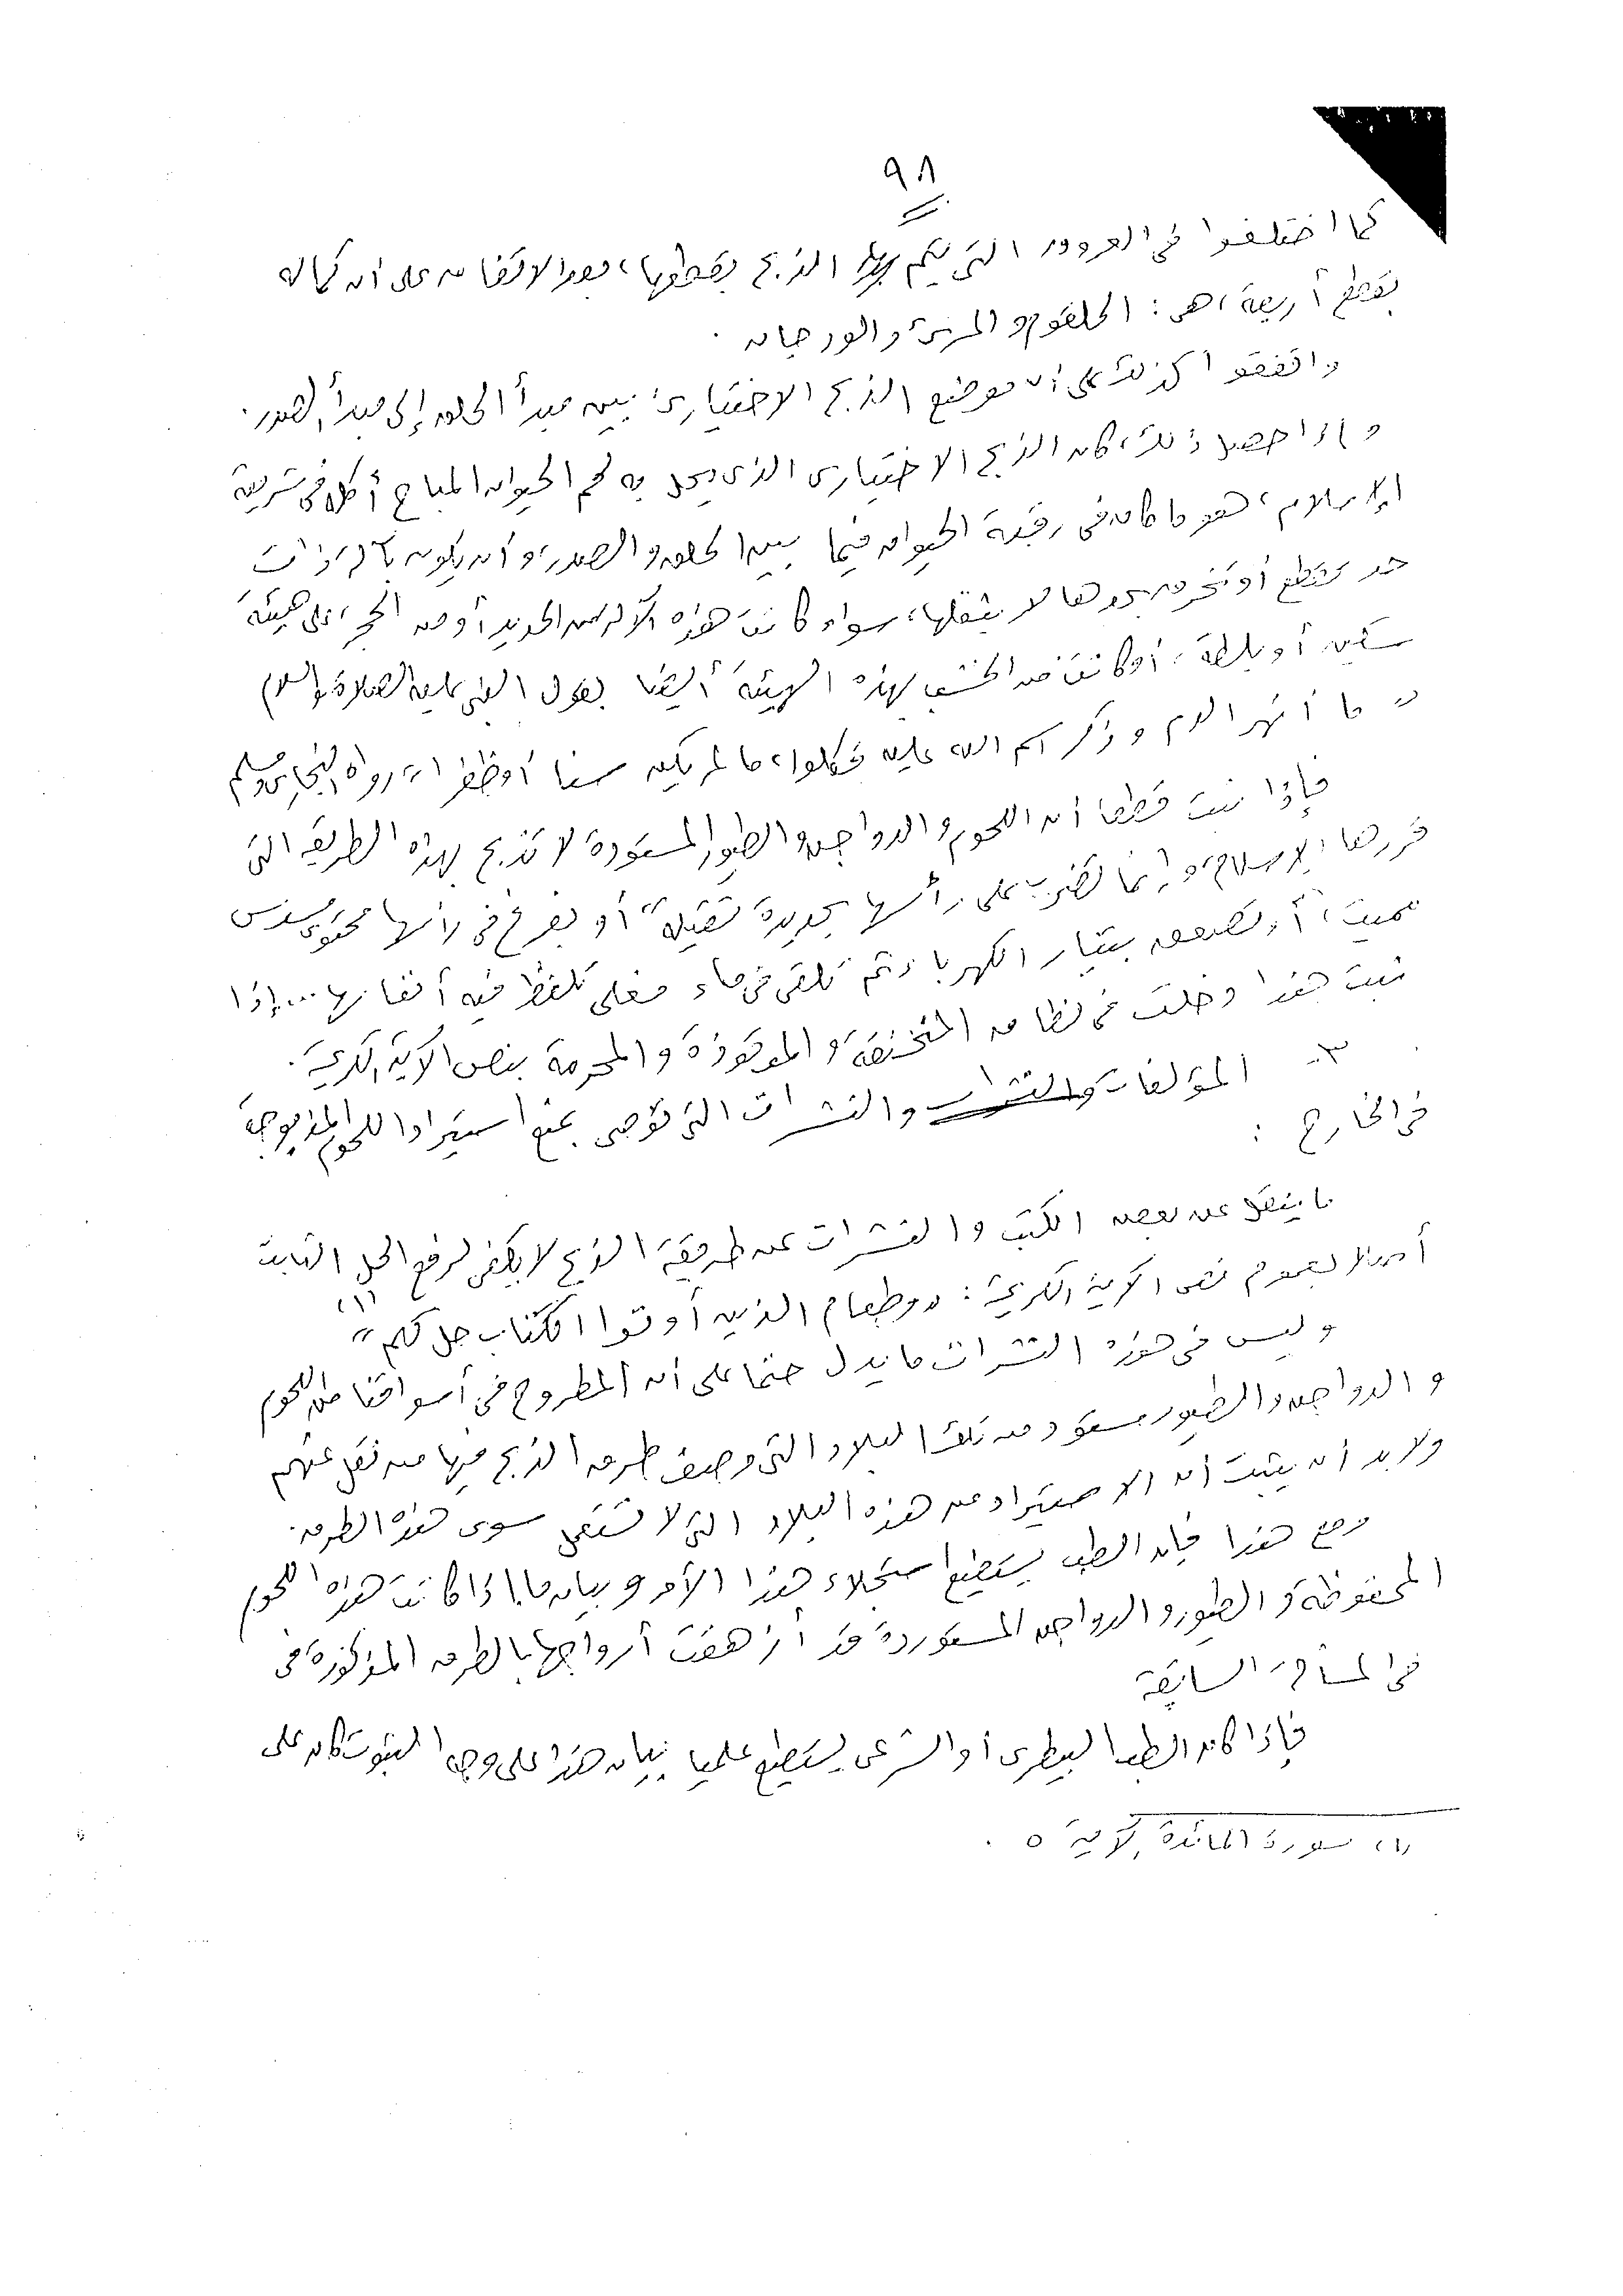 ٩٨
كما اختلفوا فى العروق التى يتم الذبح بقطعها، بعد الاتفاق على أن كماله
بقطع أربعة، هى: الحلقوم والمرىء والودجان.
واتفقوا كذلك على أن موضع الذبح الاختيارى بين مبدأ الحلق إلى مبدأ الصدر.
وإذا حصل ذلك، كان الذبح الاختيارى الذى يحل به لحم الحيوان المباح أكله فى شريعة
الإسلام، هو ما كان فى رقبة الحيوان فيما بين الحلق والصدر، وأن يكون بآلة ذات
حد تقطع أو تخرق بحدها لا بثقلها، سواء كانت هذه الآلة من الحديد أو من الحجر على هيئة
سكين أو بلطة، أو كانت من الخشب بهذه الهيئة أيضا لقول النبى عليه الصلاة والسلام
" ما أنهر الدم وذكر اسم الله عليه فكلوا، ما لم يكن سنا أو ظفرا، رواه البخارى ومسلم
فإذا ثبت قطعا أن اللحوم والدواجن والطيور المستوردة لا تذبح بهذه الطريقة التى
قررها الإسلام، وإنما تضرب على رأسها بحديدة ثقيلة" أو يفرغ فى رأسها محتوى مسدس
مميت، أو تصعق بتيار الكهرباء ثم تلقى فى ماء مغلى تلفظ فيه أنفاسها... إذا
ثبت هذا دخلت فى نطاق المنخنقة والموقوذة والمحرمة بنص الآية الكريمة.
٣- المؤلفات والنشرات والنشرات التى توصى بمنع استيراد اللحوم المذبوحة
فى الخارج :
ما ينقل عن بعض الكتب والنشرات عن طريقة الذبح لا يكفى لرفع الحل الثابت
أصلا لعموم نص الآية الكريمة: "وطعام الذين أوتوا الكتاب حل لكم" (١)
وليس فى هذه النشرات ما يدل حتما على أن المطروح فى أسواقنا من اللحوم
والدواجن والطيور مستورد من تلك البلاد التى وصف طرق الذبح فيها من نقل عنهم
ولابد أن يثبت أن الاستيراد من هذه البلاد التى لا تستعمل سوى هذه الطرق.
ومع هذا فإن الطب يستطيع استجلاء هذا الأمر وبيان ما إذا كانت هذه اللحوم
المحفوظة والطيور والدواجن المستوردة قد أزهقت أرواحها بالطرق المذكورة فى
فى المسألة السابقة
فإذا كان الطب البيطرى أو الشرعى يستطيع علميا بيان هذا على وجه الثبوت كان على
(١) سورة المائدة الآية ٥ .